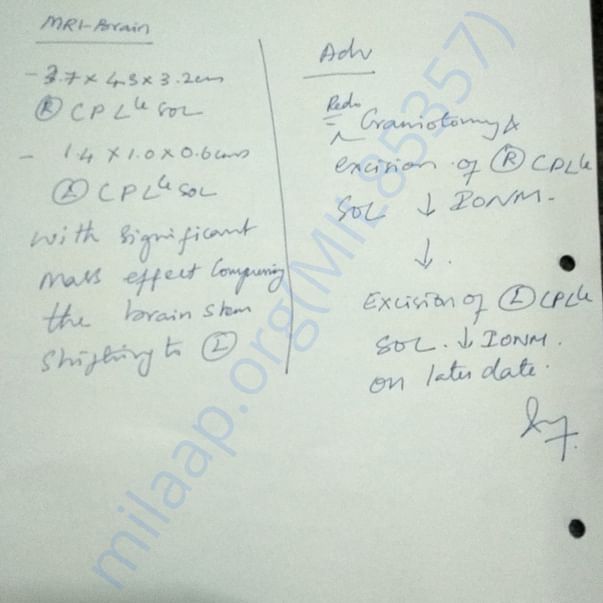 MRI-Brain
- 3.7 x 4.3 x 3.2cm
Ⓡ CPL le SOL
- 1.4 x 1.0 x 0.6cms
Ⓛ CPL le SOL
with significant
mass effect Compressing
the brain stem
shifting to Ⓛ
Adv
Redo
Craniotomy &
excision of Ⓡ CPL le
SOL ↓ IONM.
↓.
Excision of Ⓛ CPL le
SOL. ↓ IONM.
on later date.
milaap.org(MIL85357)